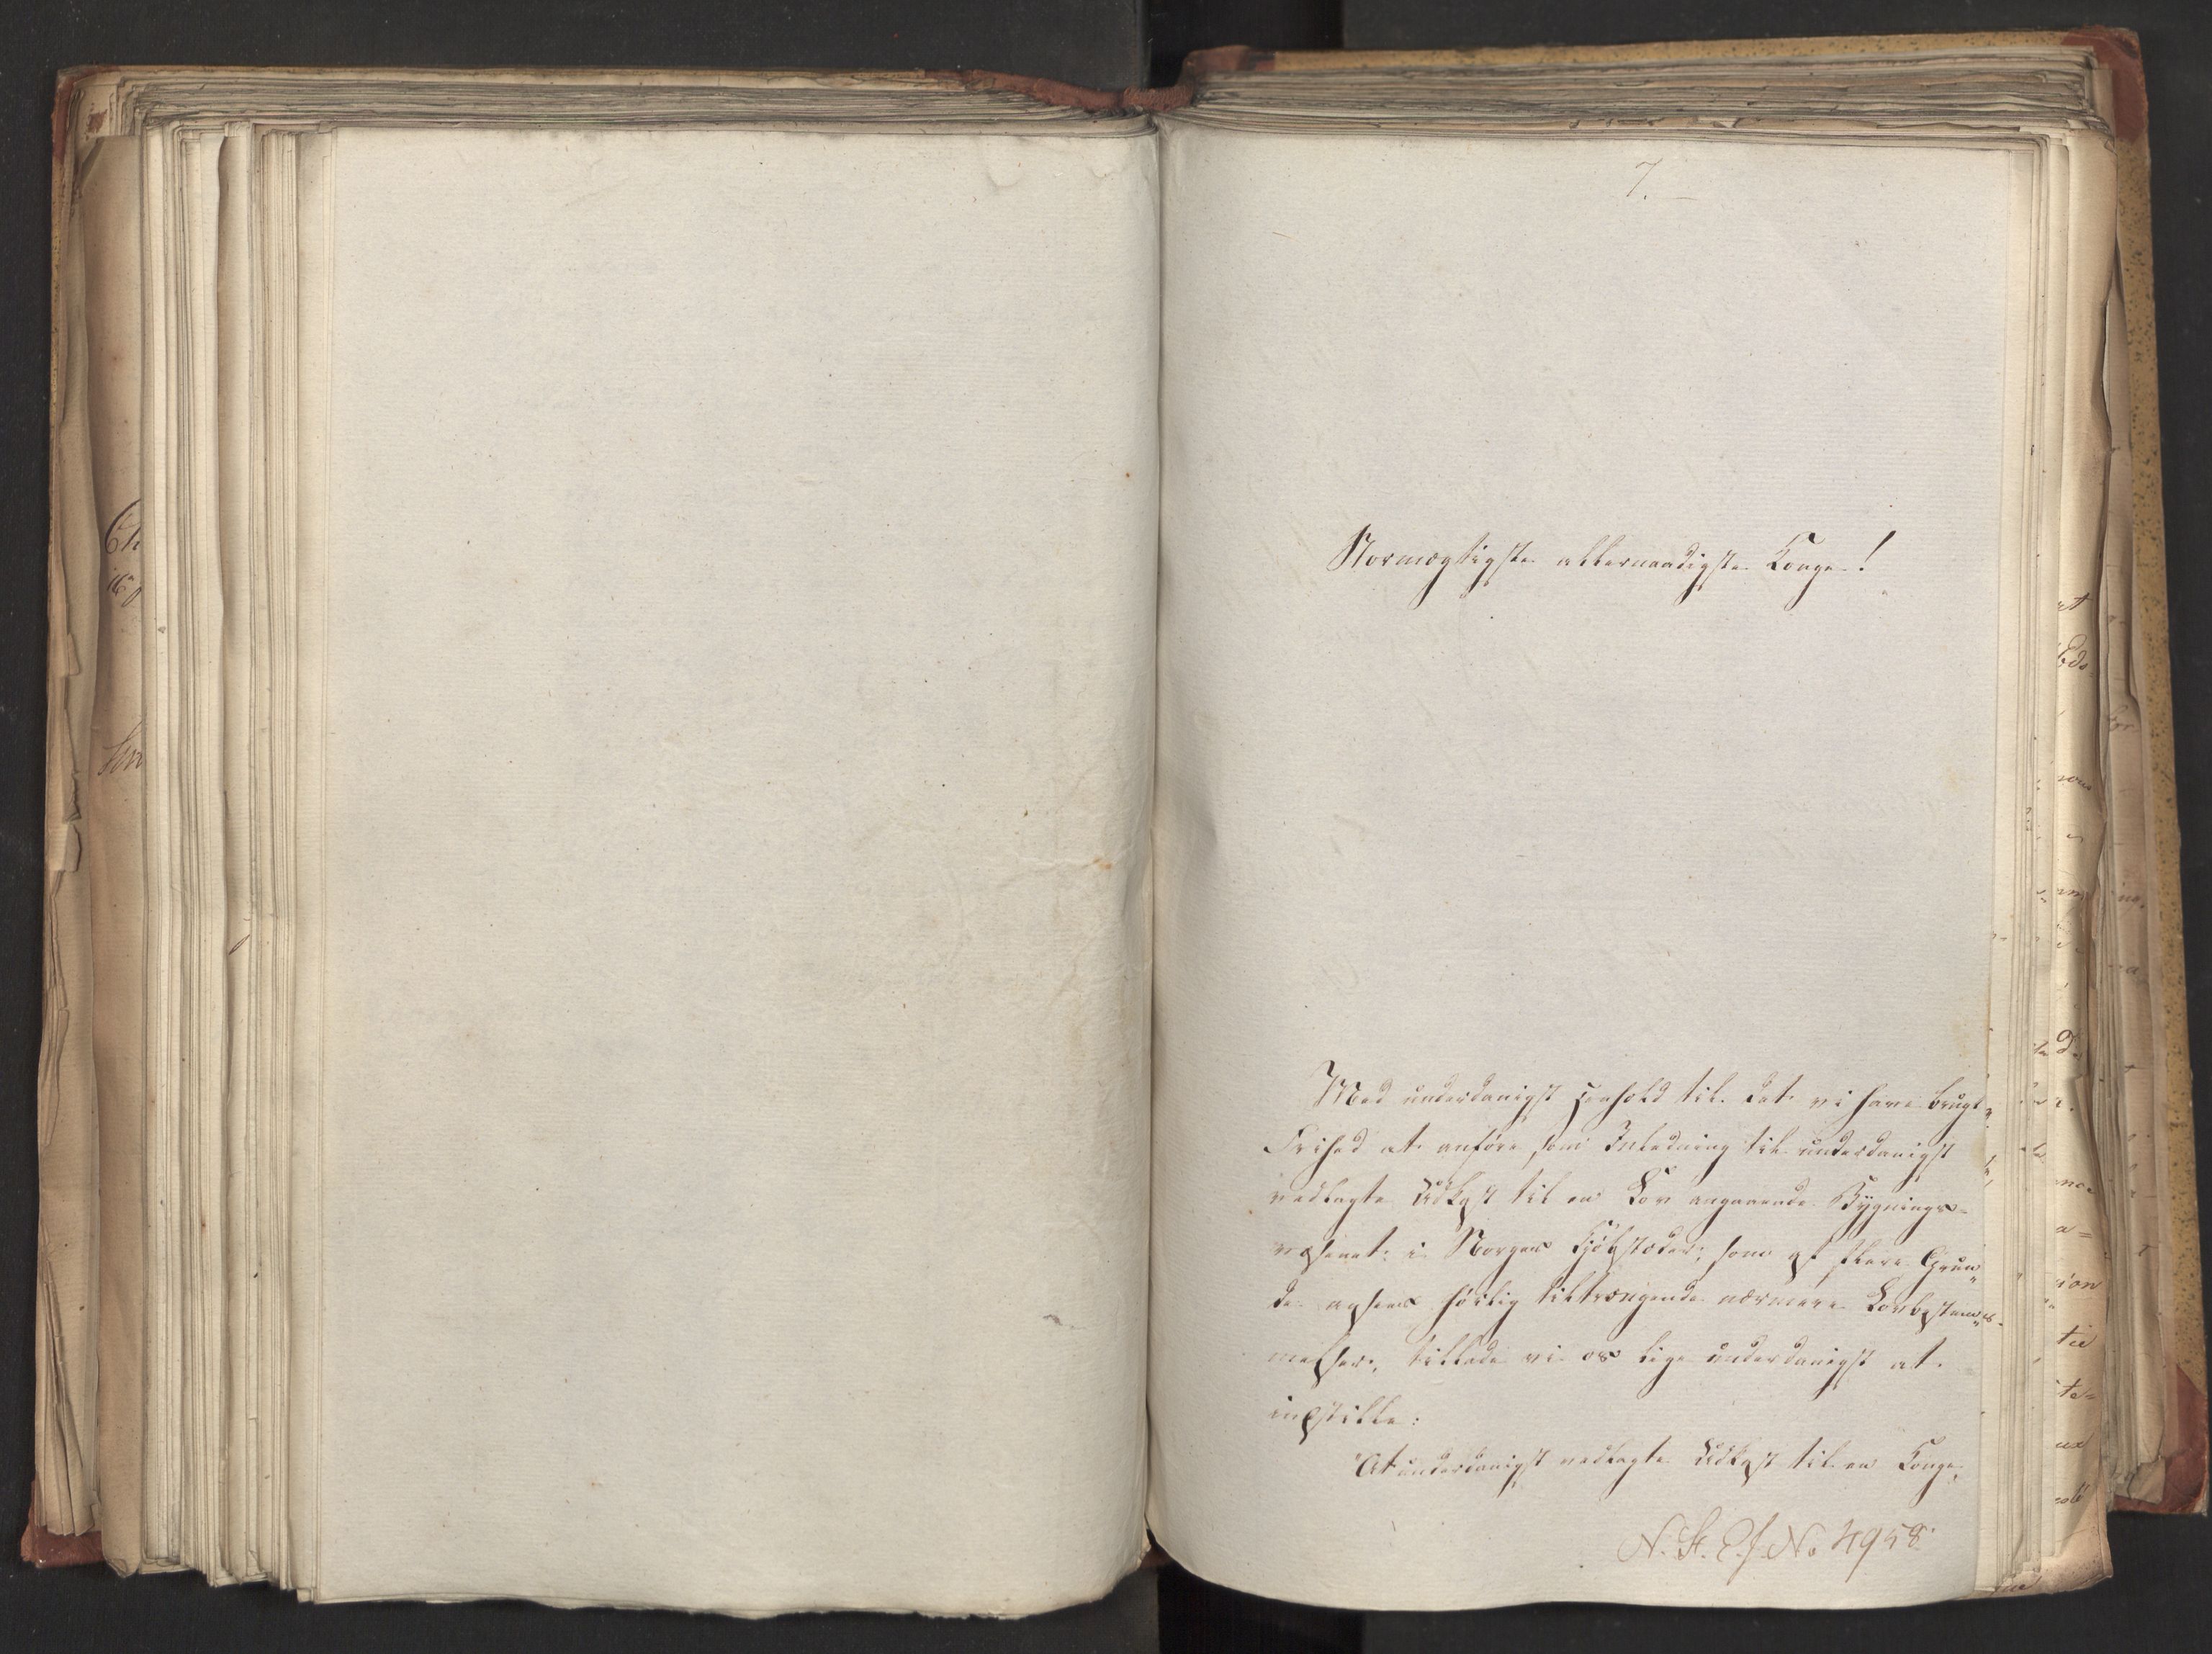 7.
Stormægtigste allernaadigste Konge!
Med underdanigst Henhold til det vi have brugt
Frihed at anføre, som Indledning til underdanigst
vedlagte Udkast til en Lov angaaende Bygnings-
væsenet i Norges Kjøbstæder, som af flere Grun
de ansees høilig tiltrængende nærmere Lovbestem
melser, tillade vi os lige underdanigst at
indstille:
"At underdanigst vedlagte Udkast til en Konge
N. St. E. J. No 4958.